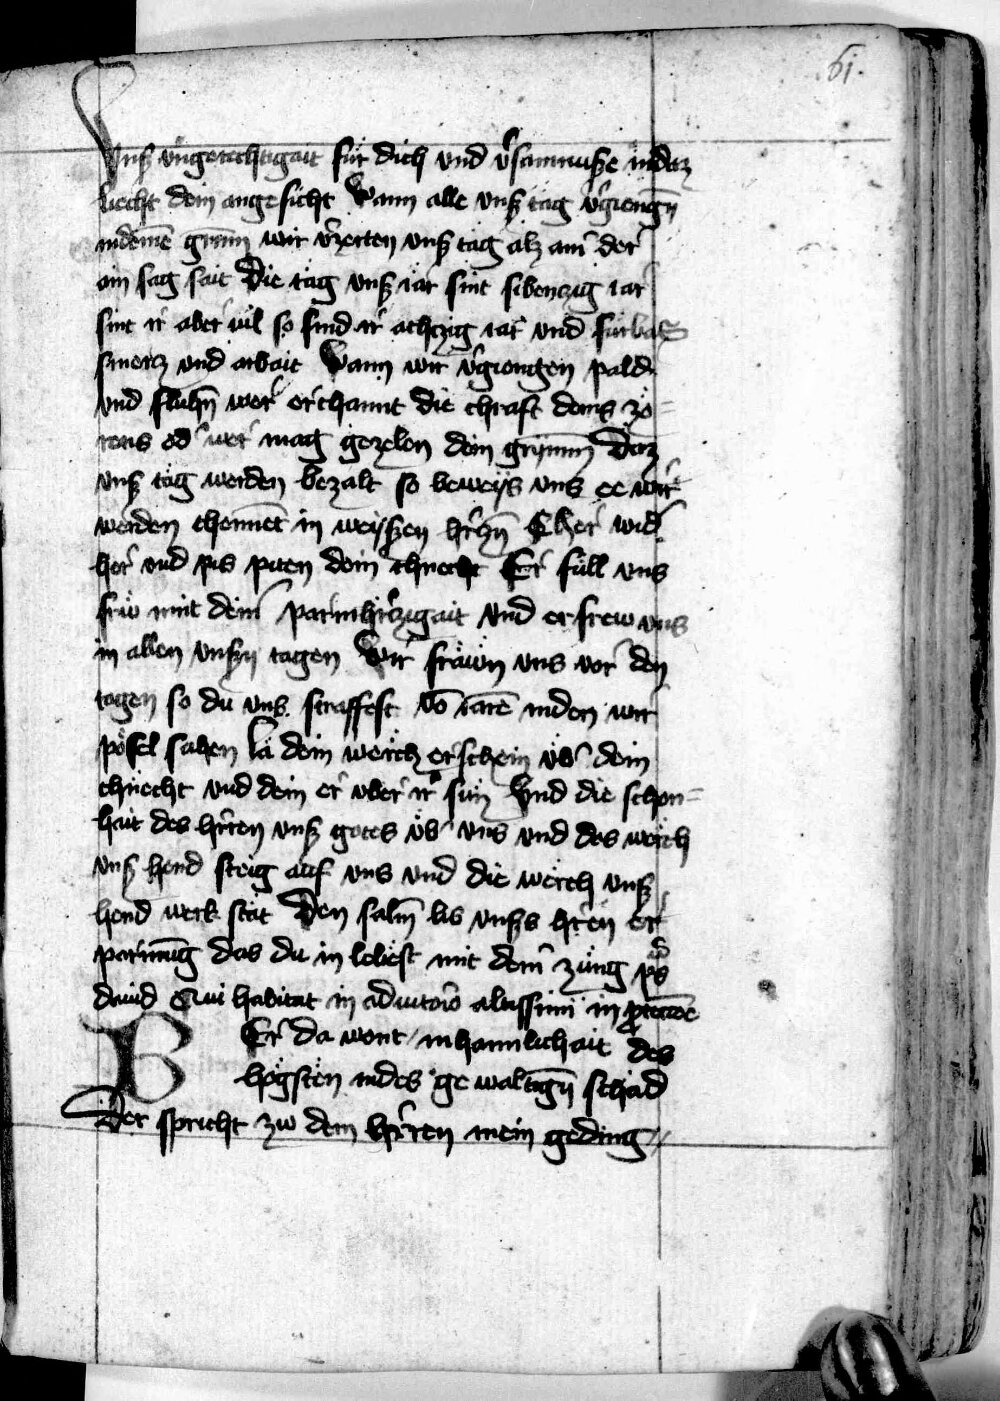 61.
Vnsʒ vngerechtigait für dich vnd v̂samnusse indaz
liecht dein angesicht Wann alle vnsʒ tag v̂giengn̄
indeinē grim̄ wir v̂zerten vnsʒ täg alz ain der
ain sag sait Die täg vnsʒ iar sint sibenczig iar
sint ir aber vil so sind ir achczig iar vnd fürbas
smercz vnd arbait Wann wir v̂giengen pald
vnd fluhn̄ wer erchannt die chraft deins zo=
rens od̂ wer mag gezelen dein grymm̄ Daz
vnsʒ täg werden bezalt so beweys vns ee wir
werden chennet in weyssen hr̂czn̄ Cher wid̂
her vnd pis piten dein chnecht Er füll vns
frw mit deinr̂ parmhr̂czigait vnd erfrew vns
in allen vnsʒn tagen Wir fräwn vns vor den
tagen so du vns straffest vō iarē inden wir
pösel sahen la dein werch erschein üb̂ dein
chnecht vnd dein er vber ir sün Vnd die schon=
hait des hr̂ren vnsʒ gotes üb̂ vns vnd das werch
vnsʒ hend steig auf vns vnd die werch vnsʒ
hend werk stät Den salm̄ lis vnsʒs hr̂en er
parmūg das du in lobest mit deinr̂ zung ps̄
dauid Qui habitat in adiutorio altissimi in ꝓteccōe
Er da wont in haimlichait des
högsten indes gewaltign̄ schäd
Der spricht zw dem hr̂ren mein geding